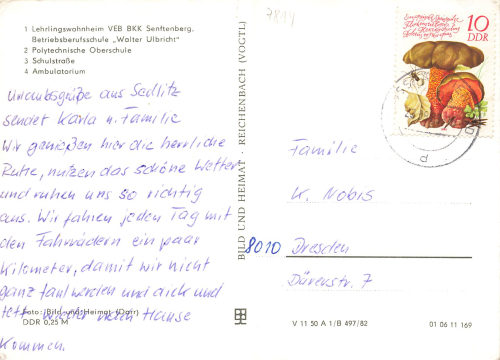 1 Lehrlingswohnheim VEB BKK Senftenberg,
Betriebsberufsschule „Walter Ulbricht"
2 Polytechnische Oberschule
3 Schulstraße
4 Ambulatorium
Urlaubsgrüße aus Sedlitz
sendet Karla u. Familie
Wir genießen hier die herrliche
Ruhe, nutzen das schöne Wetter
und ruhen uns so richtig
aus. Wir fahren jeden Tag mit
den Fahrrädern ein paar
Kilometer, damit wir nicht
ganz faul werden und dick und
fett wieder nach Hause
kommen.
Foto: Bild und Heimat (Darr)
DDR 0,25 M
BILD UND HEIMAT · REICHENBACH (VOGTL)
10
DDR
d
Familie
K. Nobis
8010 Dresden
Bärenstr. 7
V 11 50 A 1/B 497/82
01 06 11 169